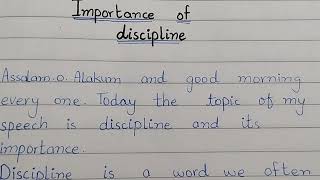 Importance of
discipline
Assalam.o.Alakum and good morning
every one. Today the topic of my
speech is discipline and its
importance.
Discipline is a word we often